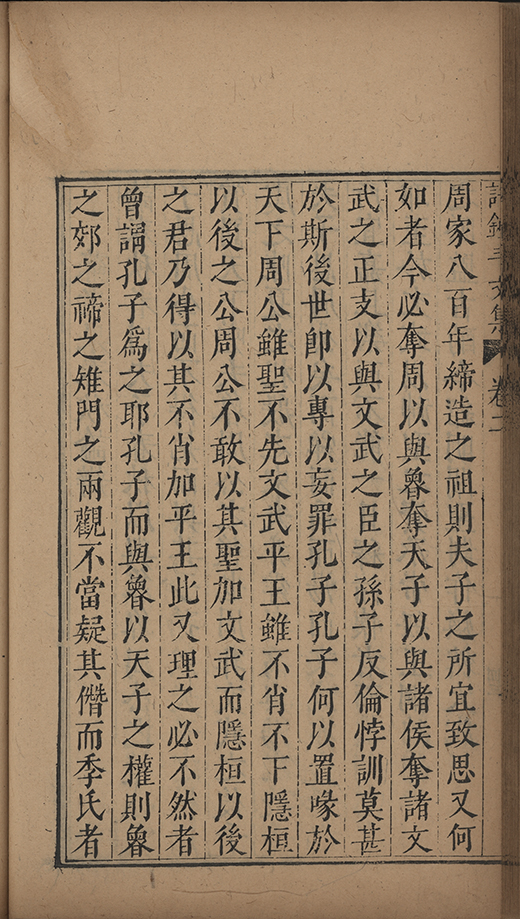 集
卷二
周家八百年締造之祖則夫子之所宜致思又何
如者今必奪周以與魯奪天子以與諸侯奪諸文
武之正支以與文武之臣之孫子反倫悖訓莫甚
於斯後世卽以專以妄罪孔子孔子何以置喙於
天下周公雖聖不先文武平王雖不肖不下隱桓
以後之公周公不敢以其聖加文武而隱桓以後
之君乃得以其不肖加平王此又理之必不然者
曾謂孔子爲之耶孔子而與魯以天子之權則魯
之郊之禘之雉門之兩觀不當疑其僭而季氏者